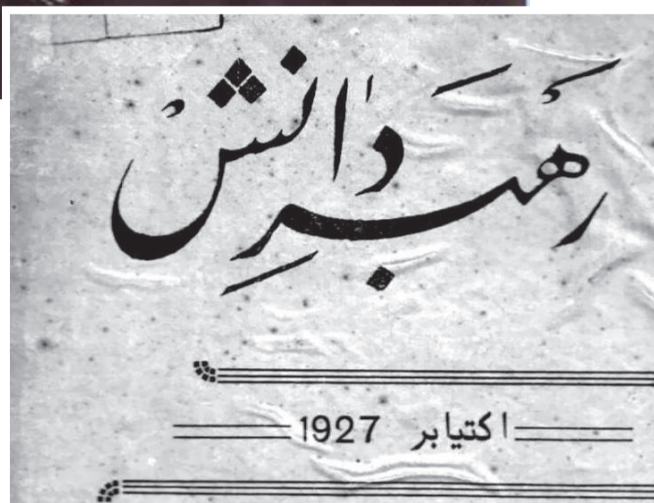 رَهبرِ دانش
اکتیابر 1927